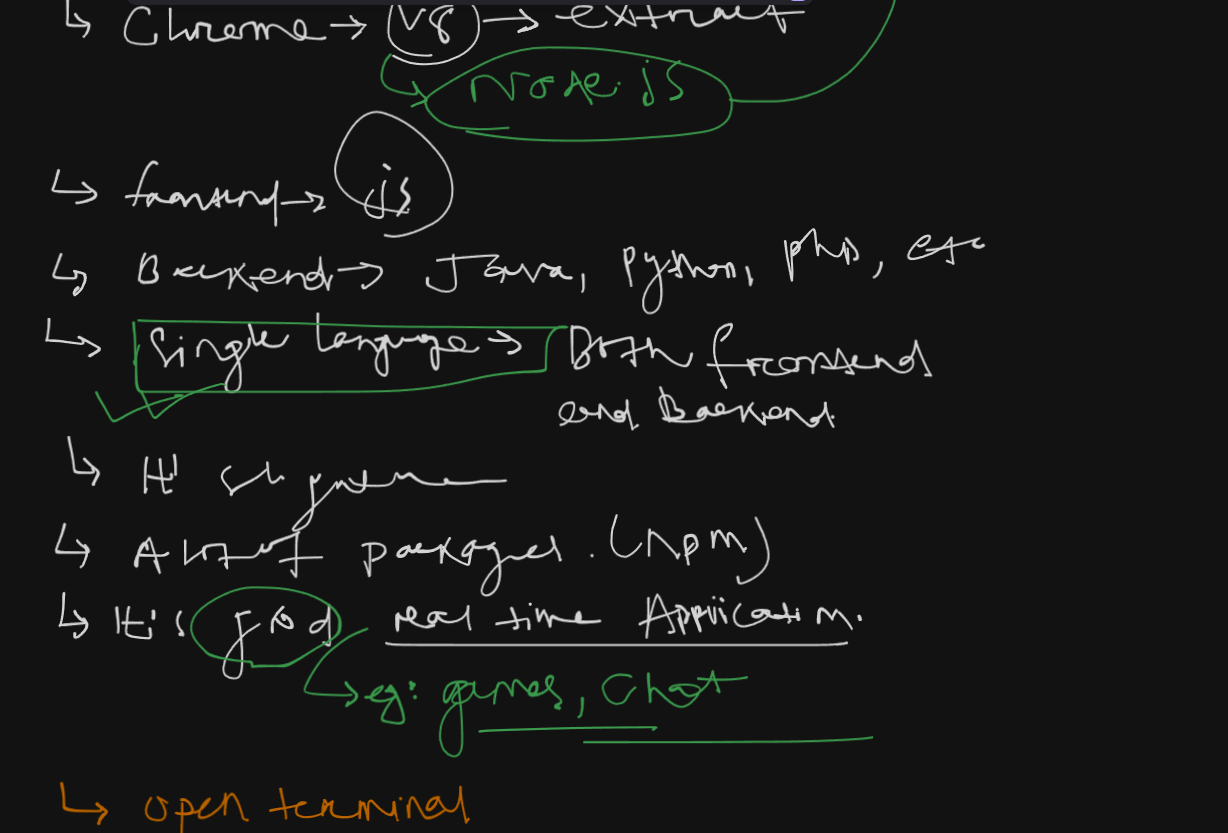 ↳ Chrome → V8 → extract
↳ Node.js
↳ frontend → js
↳ Backend → Java, python, php, etc
↳ Single language → Both frontend
and Backend
↳ It'
↳ A lot of packages. (npm)
↳ It's good real time Application.
↳ eg: games, Chat
↳ open terminal